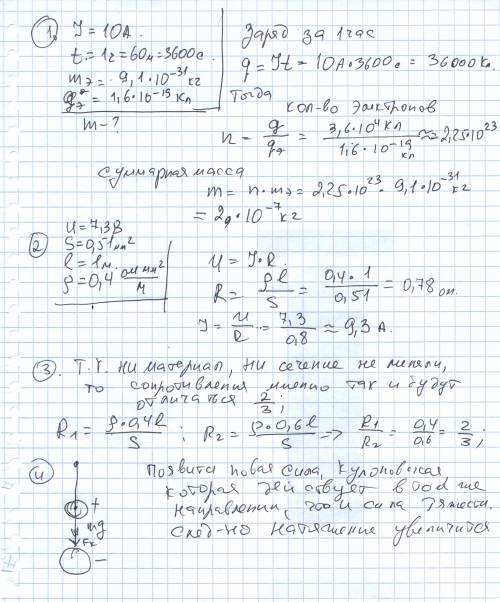 1. I = 10A.
t = 1г = 60м = 3600с.
mэ = 9,1·10⁻³¹ кг
qэ = 1,6·10⁻¹⁹ Кл
m - ?
Заряд за 1 час
q = It = 10А·3600с = 36000 Кл.
Тогда
кол-во электронов
n = q/qэ = 3,6·10⁴ Кл / 1,6·10⁻¹⁹ Кл ≈ 2,25·10²³
суммарная масса
m = n·mэ = 2,25·10²³ · 9,1·10⁻³¹ кг
= ·10⁻⁷ кг
2 U = 7,3В
S = 0,51 мм²
l = 1м.
ρ = 0,4 ом мм²/м
U = I·R.
R = ρl/S = 0,4·1/0,51 = 0,78 ом.
I = U/R = 7,3/0,8 ≈ 9,3 А.
3. Т.к. ни материал, ни сечение не меняли,
то сопротивления именно так и будут
отличаться 2/3;
R1 = ρ·0,4l/S ; R2 = ρ·0,6l/S => R1/R2 = 0,4/0,6 = 2/3;
4 Появится новая сила, кулоновская
которая действует в том же
направлении, что и сила тяжести.
след-но натяжение увеличится
+
mg
Fк
−